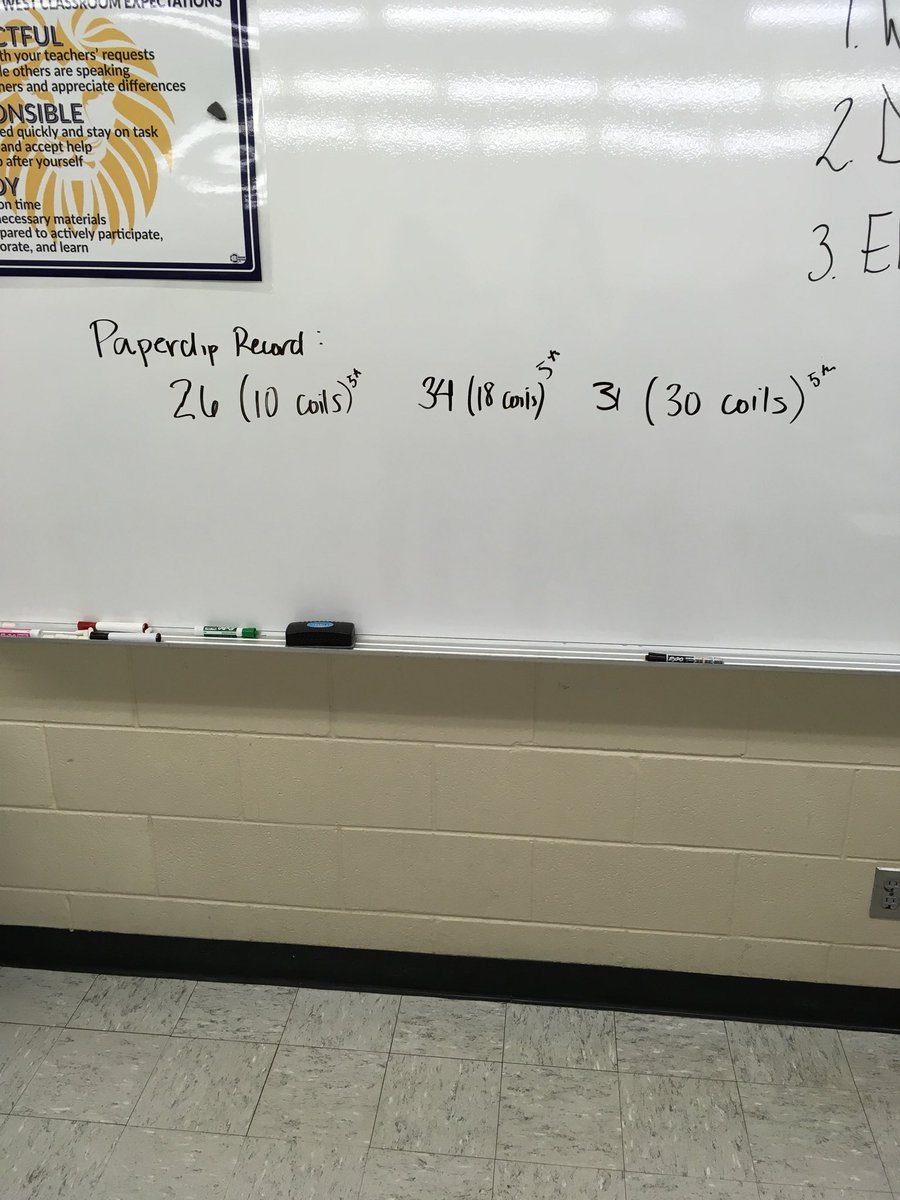 WEST CLASSROOM EXPECTATIONS
CTFUL
th your teachers' requests
le others are speaking
ners and appreciate differences
ONSIBLE
ed quickly and stay on task
and accept help
after yourself
DY
on time
necessary materials
pared to actively participate,
orate, and learn
1.
2. D
3. El
Paperclip Record:
26 (10 coils) 5th 34 (18 coils) 5th 31 (30 coils) 5th
EXPO